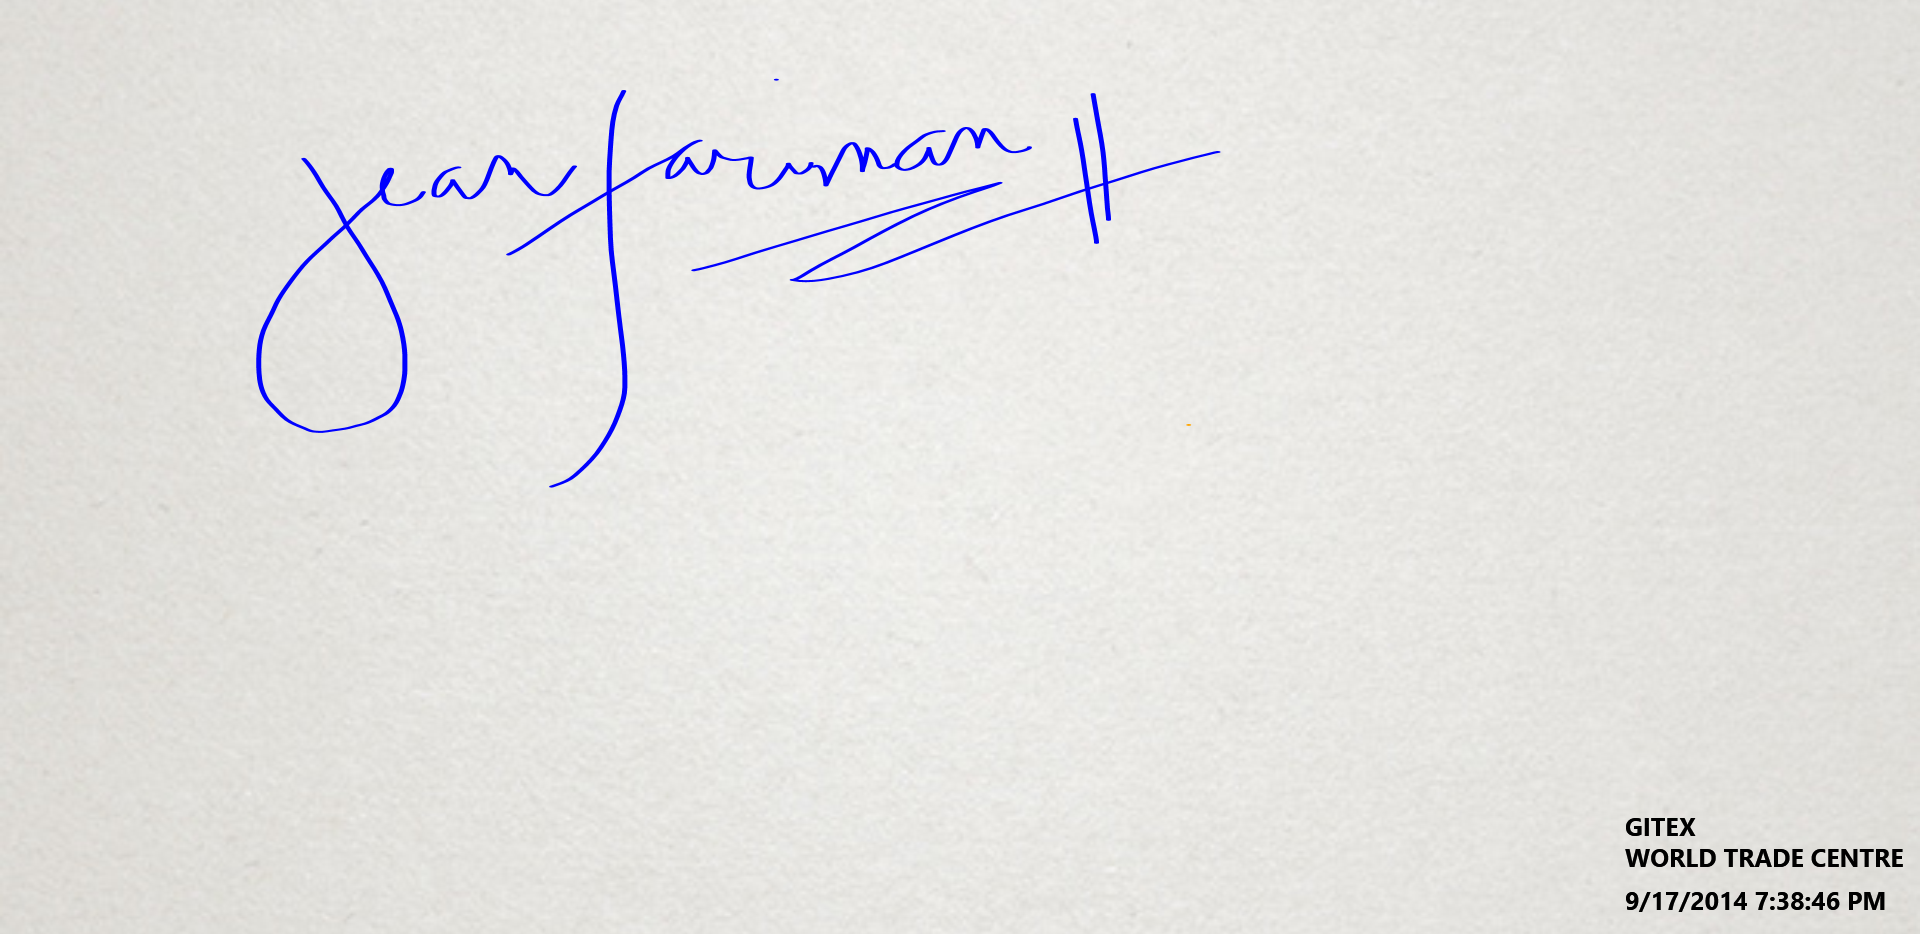 Jean
GITEX
WORLD TRADE CENTRE
9/17/2014 7:38:46 PM